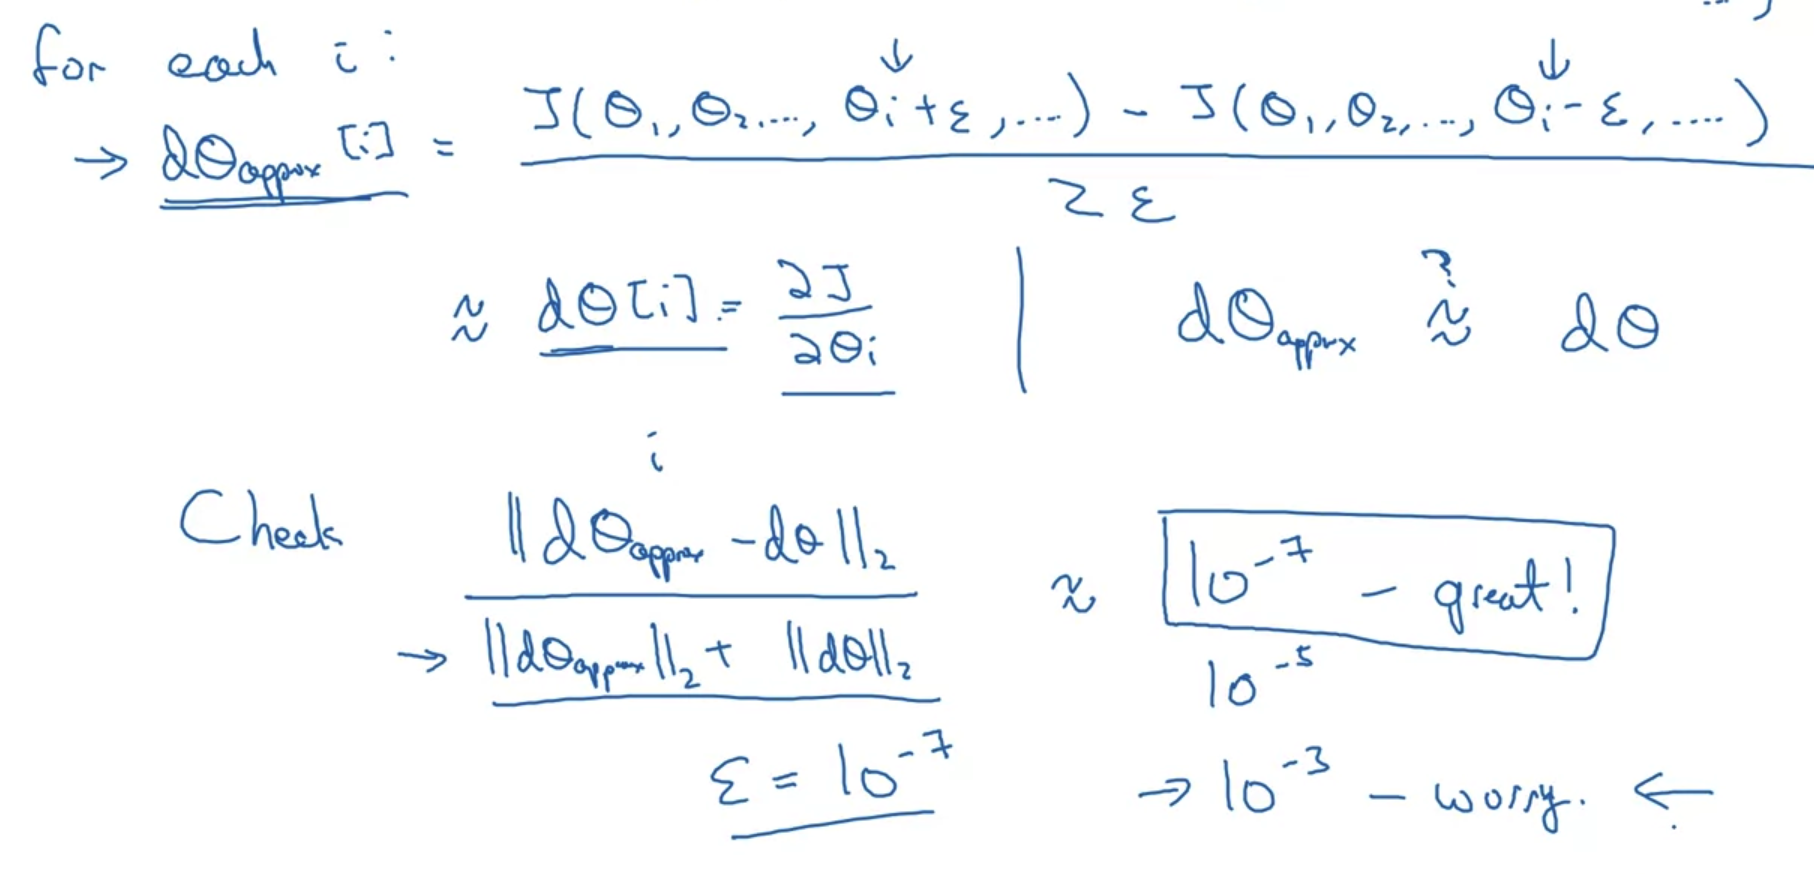 for each i:
→ dθapprox[i] = J(θ1, θ2, ..., θi + ε, ....) - J(θ1, θ2, ..., θi - ε, ....)
2ε
≈ dθ[i] = ∂J / ∂θi | dθapprox ≈? dθ
i
Check ||dθapprox - dθ||2 ≈ 10^-7 - great!
→ ||dθapprox||2 + ||dθ||2
10^-5
ε = 10^-7 → 10^-3 - worry. ←